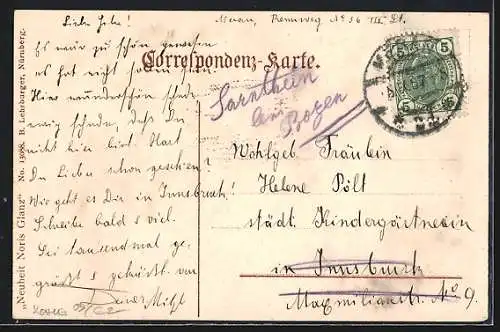 Liebe Helene!
Meran, Rennweg No 36 III. St.
Es wär zu schön gewesen
es hat nicht sollen sein.
Hier wunderschön schade
ewig schade, daß Du
nicht hier bist. Hast
Du Lieber schon geschrieben?
Wie geht es Dir in Innsbruck?
Schreibe bald u viel.
Sei tausendmal ge-
grüßt u geküßt von
Deiner
Correspondenz-Karte.
Sarnthein
bei
Bozen
Wohlgeb Fräulein
Helene Pölt
städt. Kindergärtnerin
in Innsbruck
Maximilianstr. No 9.
5 5
5 5
"Neuheit Noris Glanz" No. 13088. B. Lehrburger, Nürnberg.